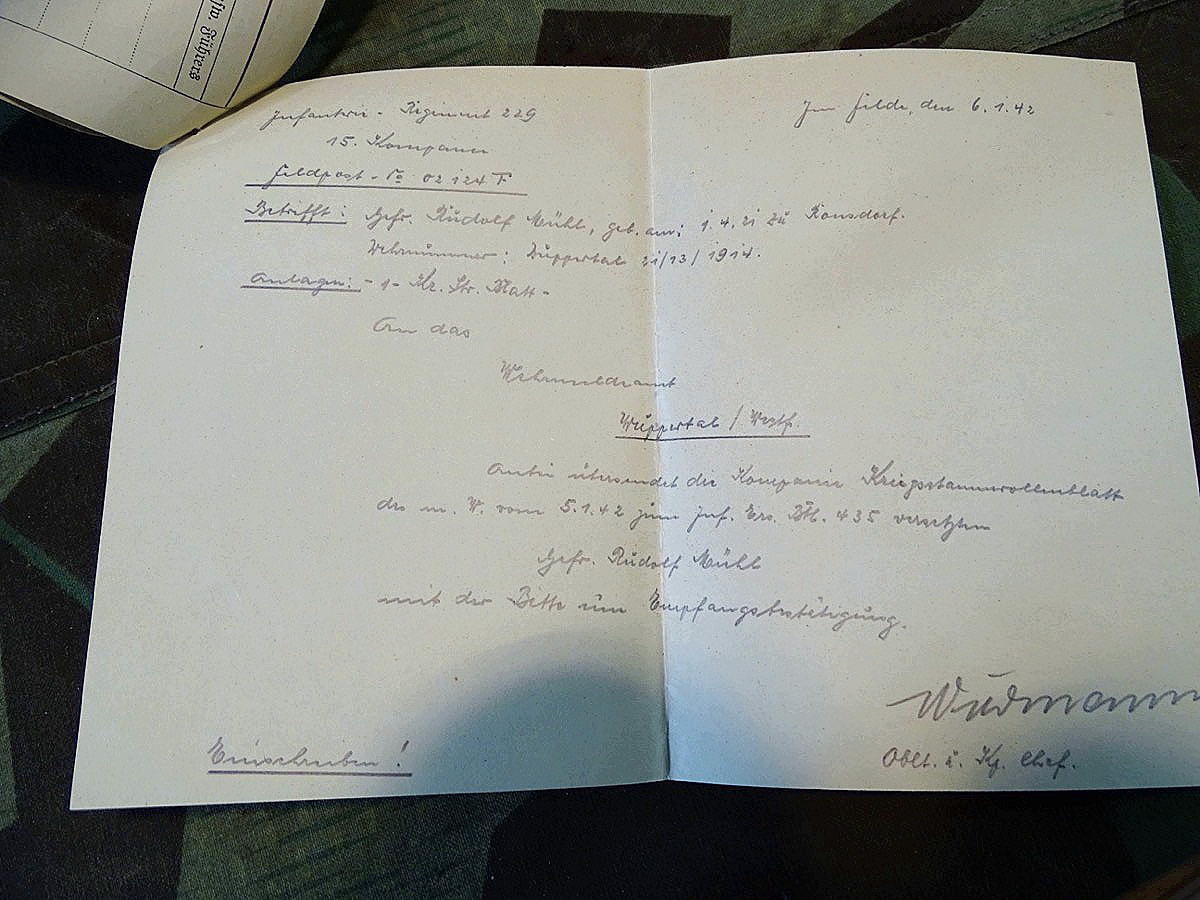 sw. Führers
Infanterie-Regiment 229
Im Felde, den 6.1.42
15. Kompanie
Feldpost-No 02124 F
Betrifft: Gefr. Rudolf Mühl, geb. am: 1.4.21 zu Ronsdorf.
Wehrnummer: Wuppertal 21/13/1914.
Anlagen: -1- Kr. St. Blatt -
An das
Wehrmeldeamt
Wuppertal / Westf.
übersendet die Kompanie Kriegsstammrollenblatt
des m. W. vom 5.1.42 zum Inf. Ers. Btl. 435 versetzten
Gefr. Rudolf Mühl
mit der Bitte um Empfangsbestätigung.
Oblt. u. Kp. Chef.
Einschreiben!